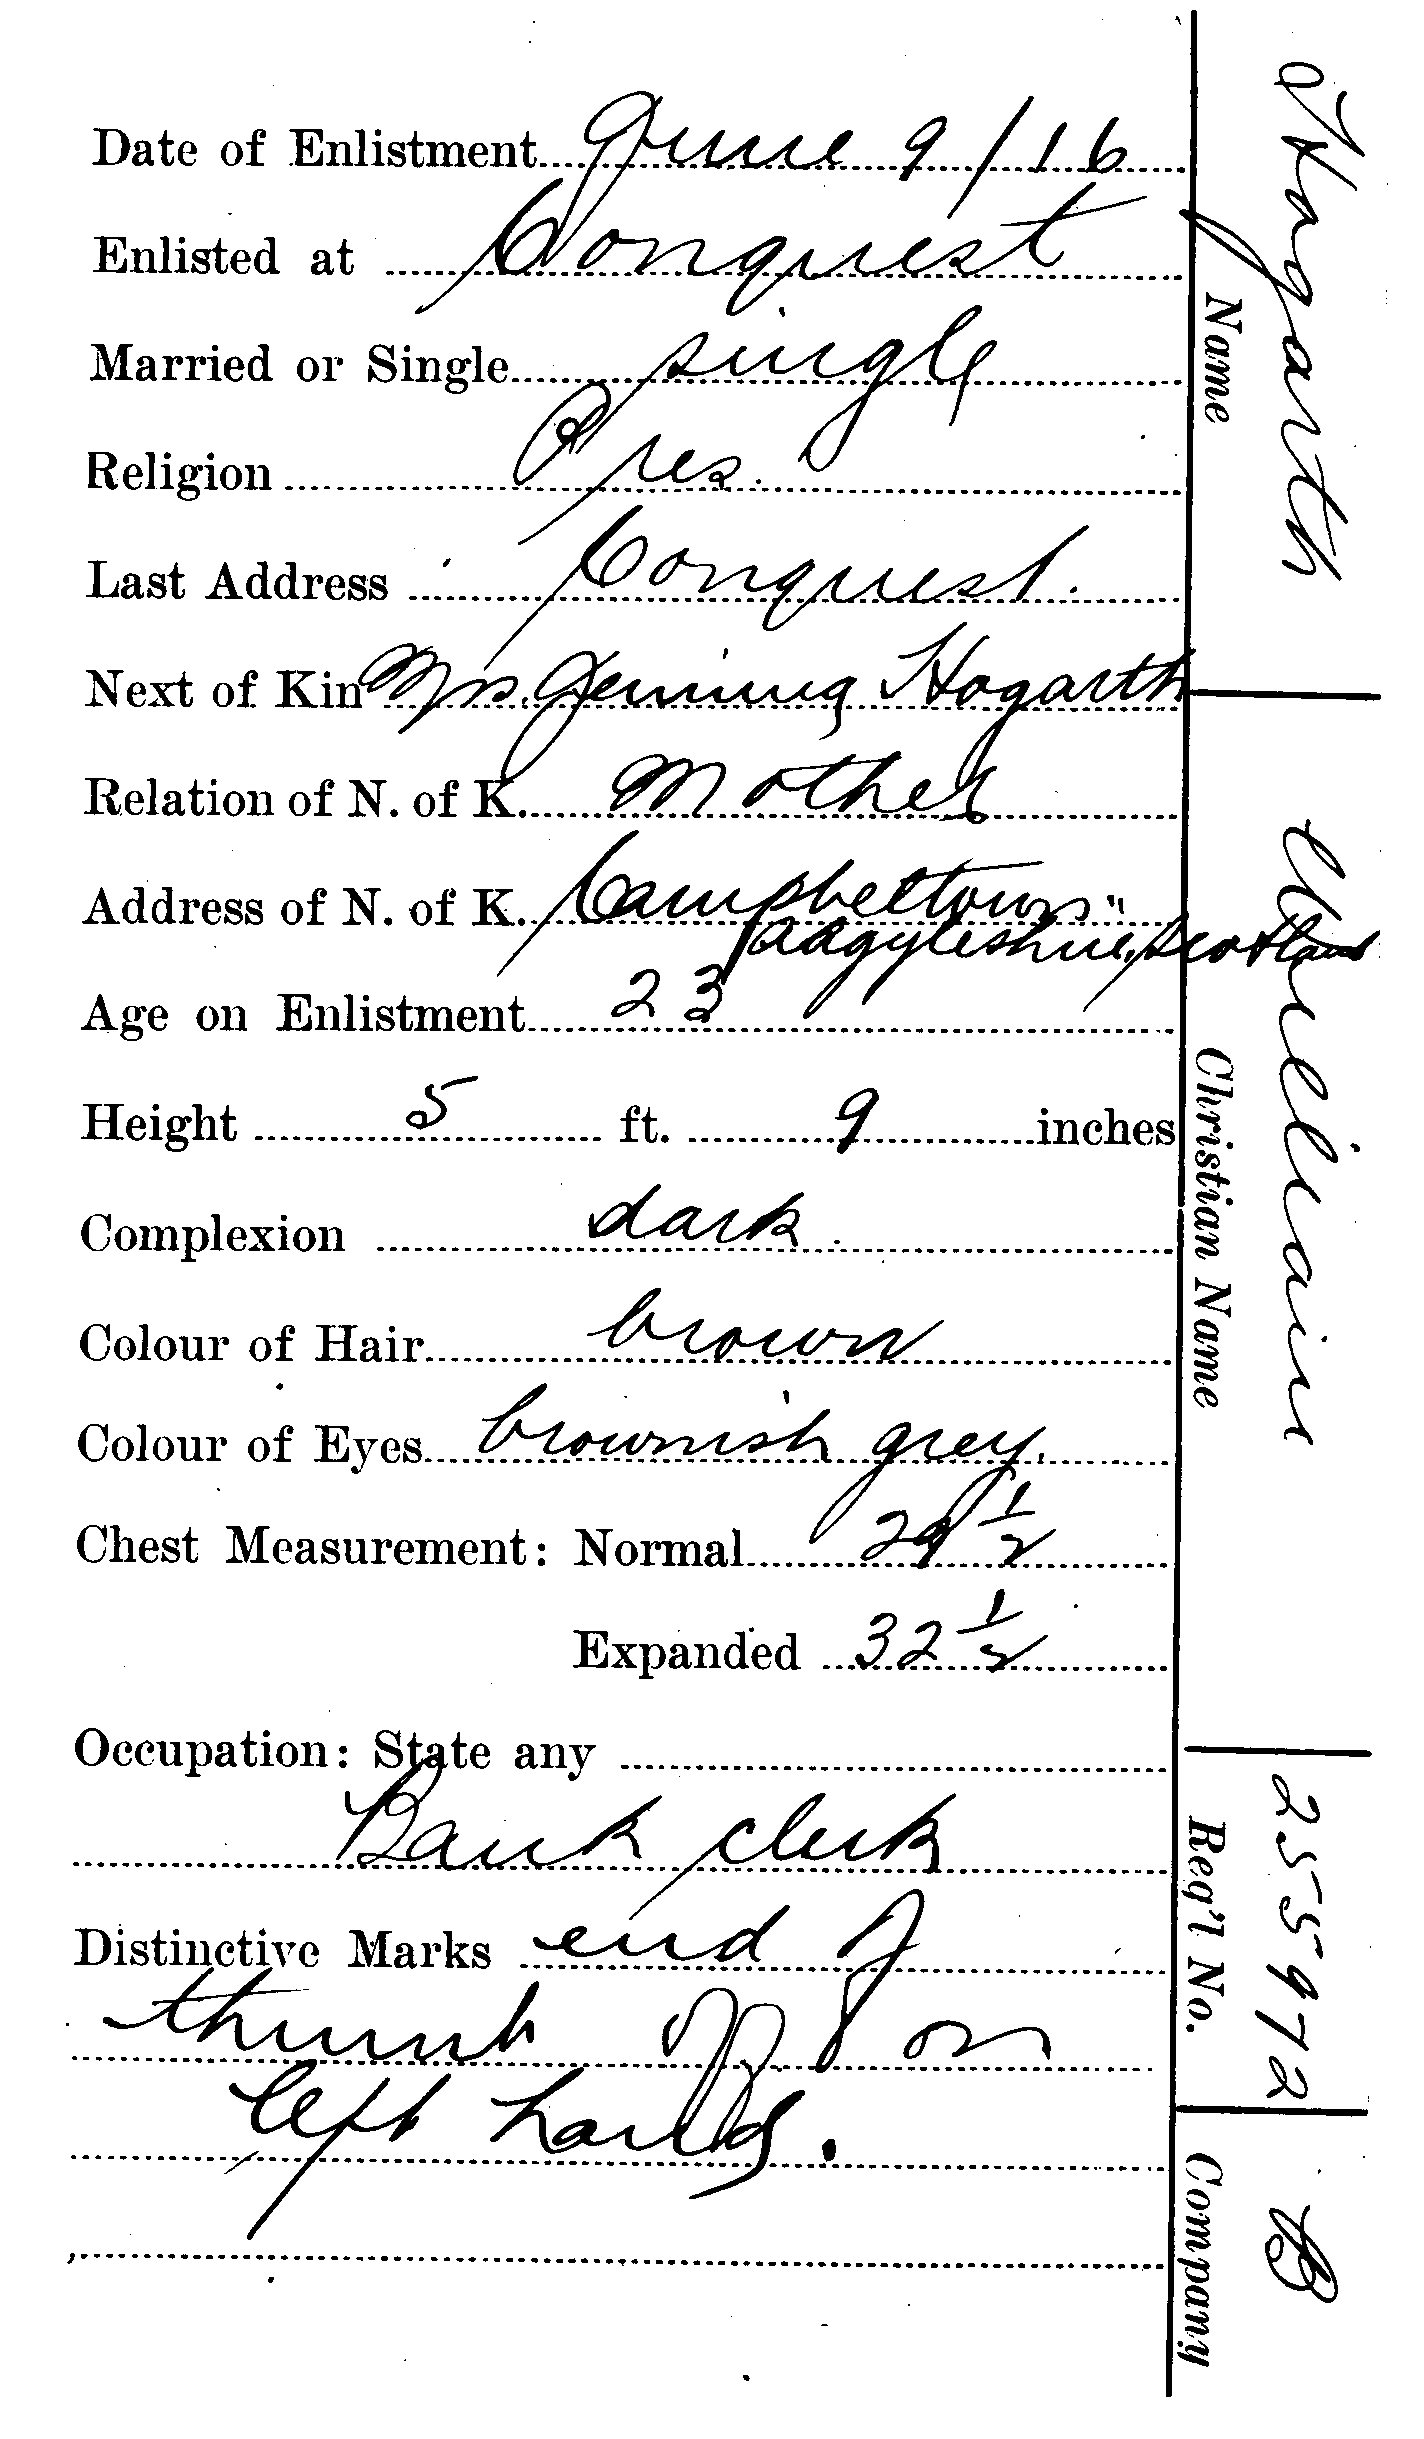 Date of Enlistment June 9/16
Enlisted at Conquest
Married or Single single
Religion Pres.
Last Address Conquest.
Next of Kin Mrs. Hogarth
Relation of N. of K. Mother
Address of N. of K. Campbeltown
Argyleshire, Scotland
Age on Enlistment 23
Height 5 ft. 9 inches
Complexion dark
Colour of Hair brown
Colour of Eyes brownish grey.
Chest Measurement: Normal 29 1/2
Expanded 32 1/2
Occupation: State any
Bank clerk
Distinctive Marks end of
thumb off on
left hand.
Hogarth
Name
William
Christian Name
255972
Reg'l No.
B
Company